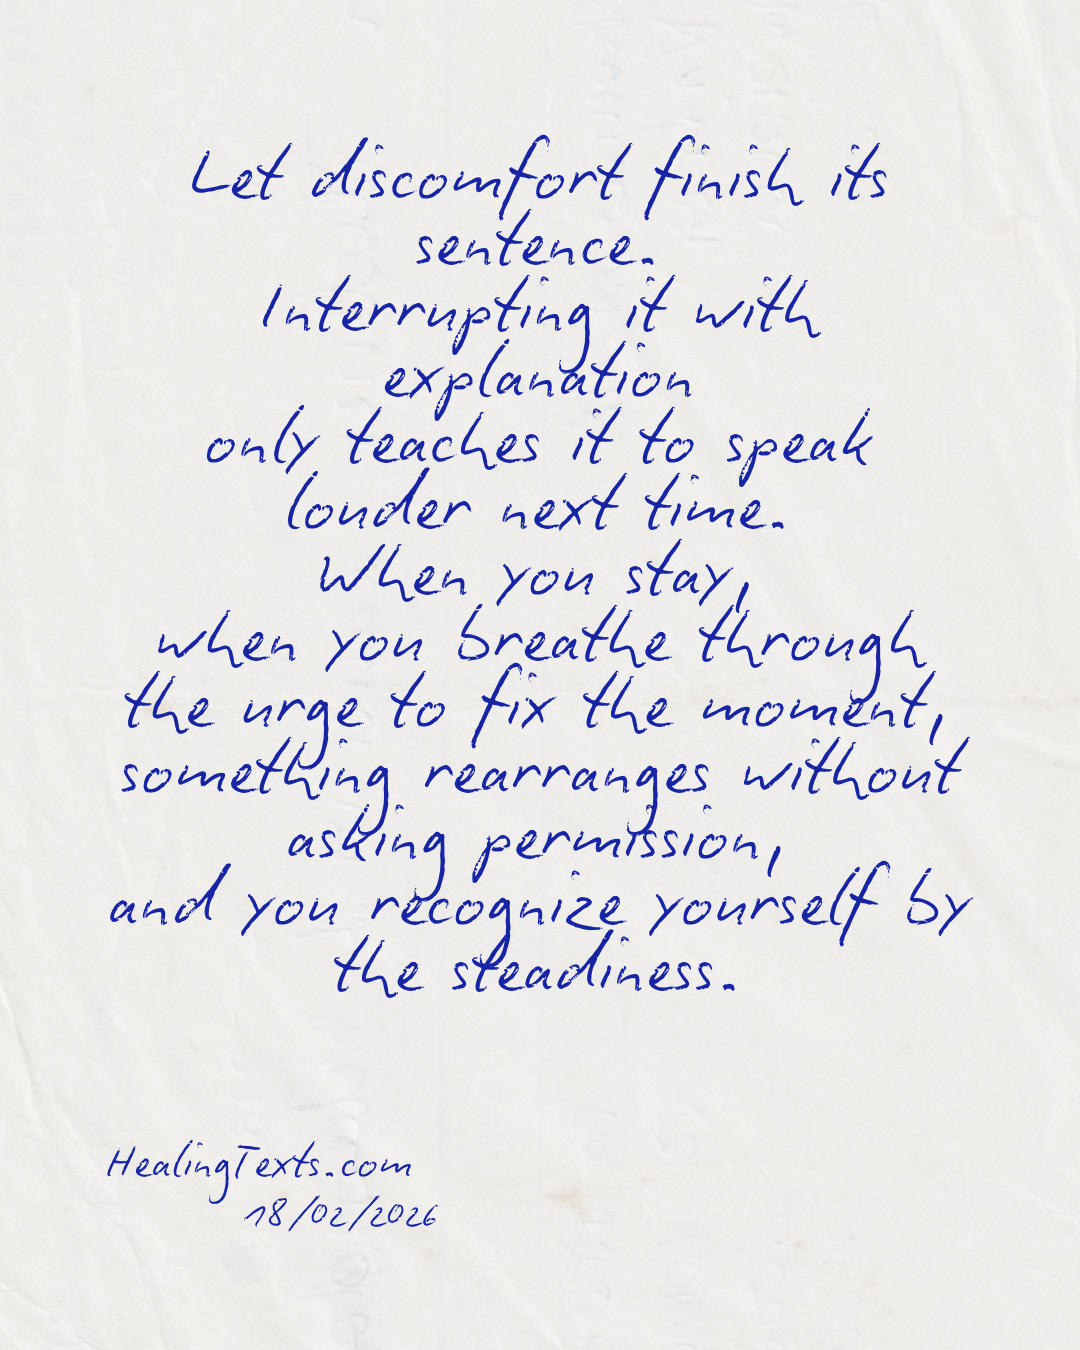 Let discomfort finish its
sentence.
Interrupting it with
explanation
only teaches it to speak
louder next time.
When you stay,
when you breathe through
the urge to fix the moment,
something rearranges without
asking permission,
and you recognize yourself by
the steadiness.
HealingTexts.com
18/02/2026